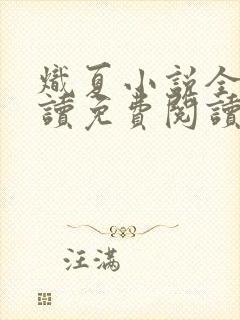 熾夏小說全
讀免費閱讀
汪滿